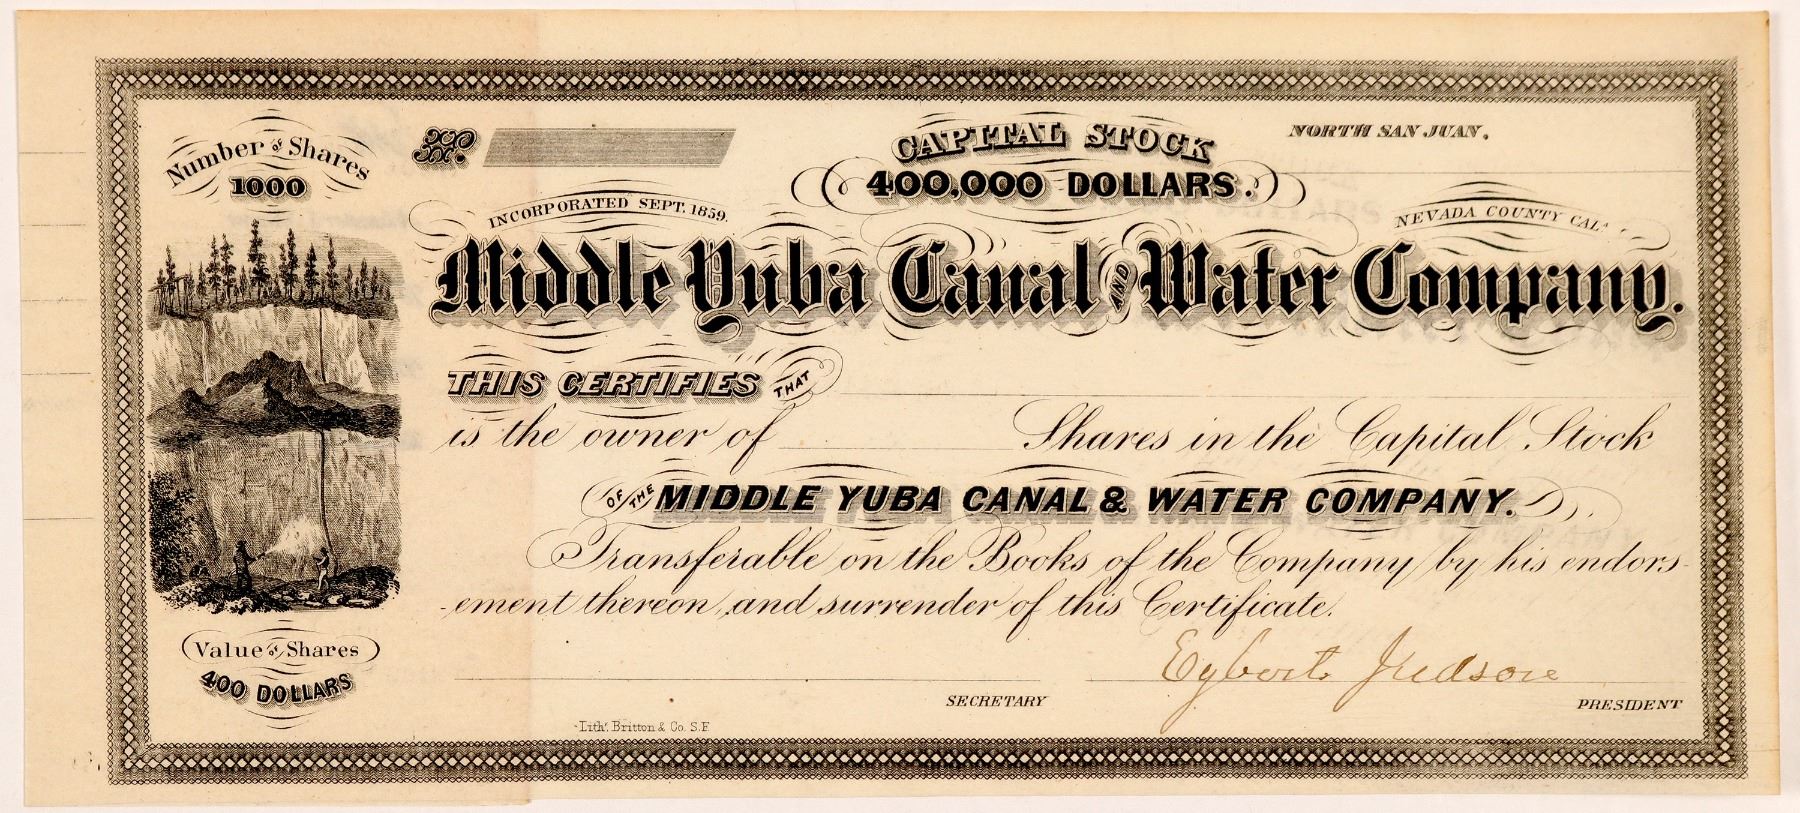 Number of Shares
1000
No.
CAPITAL STOCK
400,000 DOLLARS.
NORTH SAN JUAN.
INCORPORATED SEPT. 1859.
NEVADA COUNTY CAL.
Middle Yuba Canal AND Water Company.
THIS CERTIFIES THAT
is the owner of Shares in the Capital Stock
OF THE MIDDLE YUBA CANAL & WATER COMPANY.
Transferable on the Books of the Company by his endors-
-ement thereon, and surrender of this Certificate.
Value of Shares
400 DOLLARS
Egbert Judson
SECRETARY
PRESIDENT
Lith. Britton & Co. S.F.